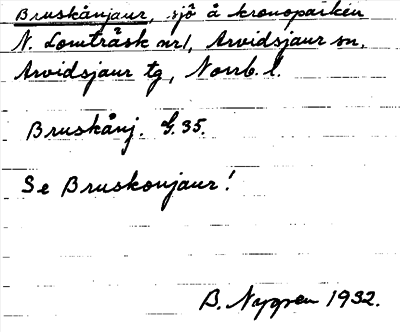 Bruskånjaur, sjö å kronoparken
N. Lomträsk nr1, Arvidsjaur sn,
Arvidsjaur tg, Norrb. l.
Bruskånj. G. 35.
Se Bruskonjaur!
B. Nygren 1932.